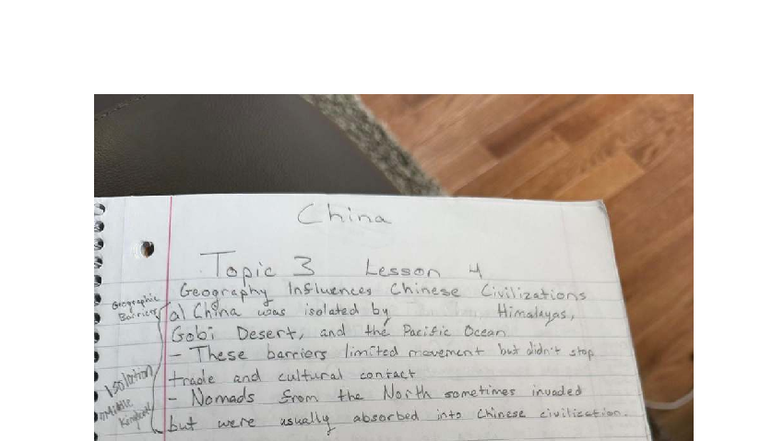 China
Topic 3 Lesson 4
Geography Influences Chinese Civilizations
Geographic
Barriers
a) China was isolated by Himalayas,
Gobi Desert, and the Pacific Ocean
- These barriers limited movement but didn't stop
Isolation
trade and cultural contact
- Nomads from the North sometimes invaded
Middle
Kingdom
but were usually absorbed into Chinese civilization.